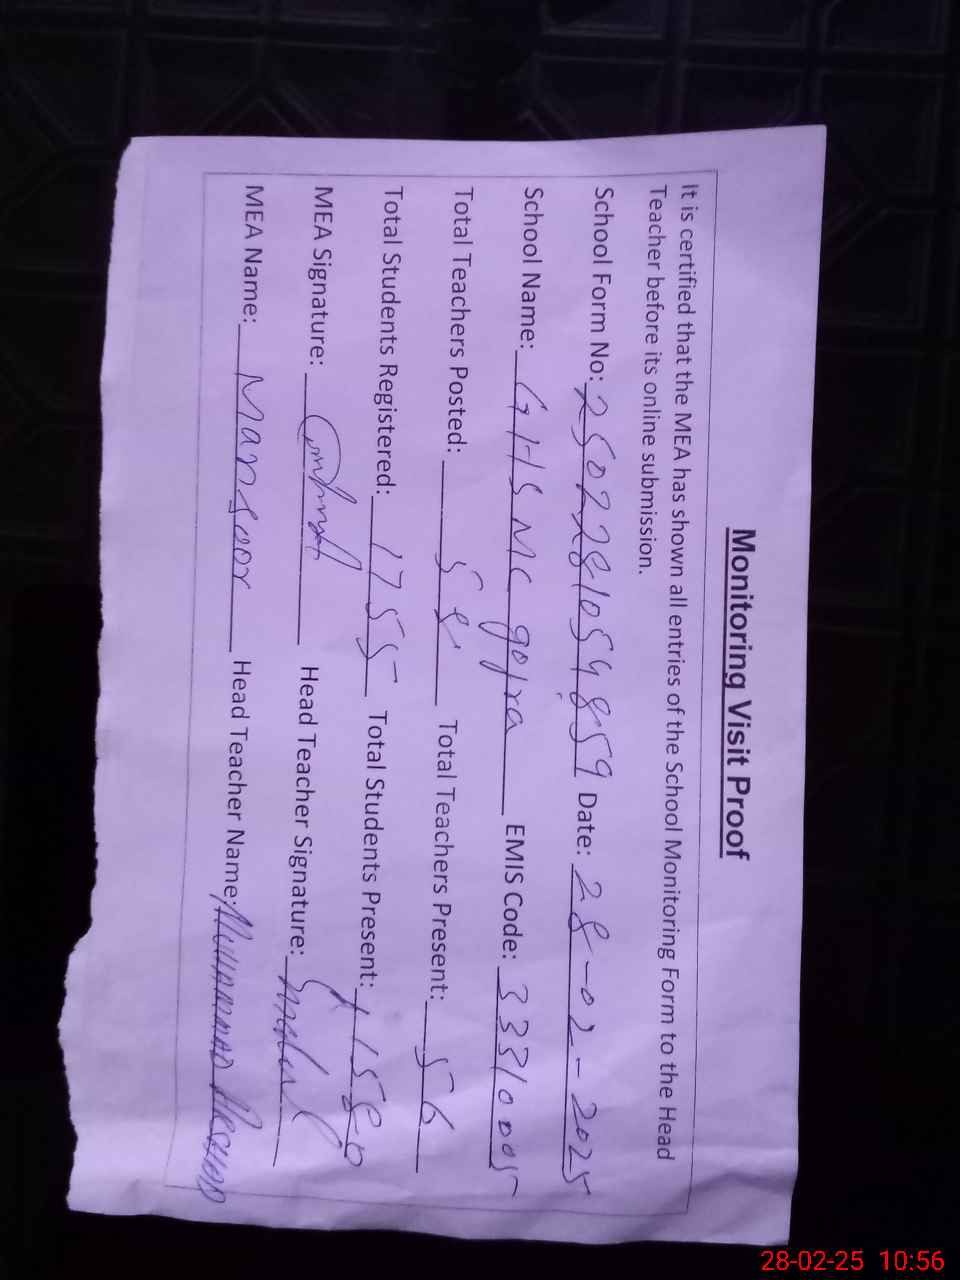 Monitoring Visit Proof
It is certified that the MEA has shown all entries of the School Monitoring Form to the Head
Teacher before its online submission.
School Form No: 25022810598859 Date: 28-02-2025
School Name: GHS MC gojra EMIS Code: 33310005
Total Teachers Posted: 58 Total Teachers Present: 56
Total Students Registered: 1755 Total Students Present: 1580
MEA Signature: Head Teacher Signature:
MEA Name: Mansoor Head Teacher Name: Muhammad
28-02-25 10:56